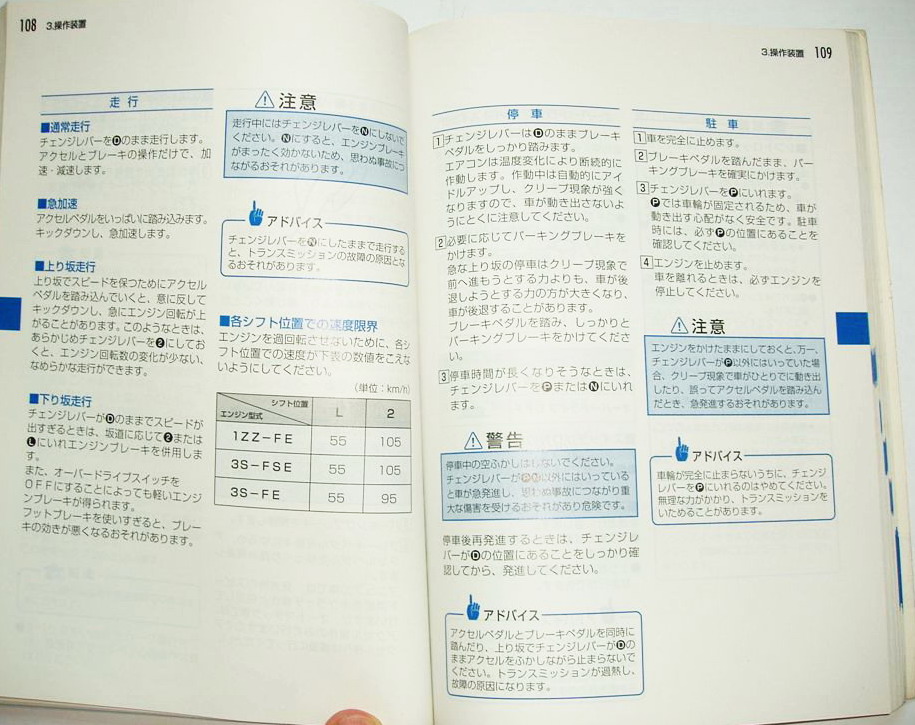 108 3.操作装置
走行
■通常走行
チェンジレバーをDのまま走行します。
アクセルとブレーキの操作だけで、加
速・減速します。
■急加速
アクセルペダルをいっぱいに踏み込みます。
キックダウンし、急加速します。
■上り坂走行
上り坂でスピードを保つためにアクセル
ペダルを踏み込んでいくと、意に反して
キックダウンし、急にエンジン回転が上
がることがあります。このようなときは、
あらかじめチェンジレバーを2にしてお
くと、エンジン回転数の変化が少ない、
なめらかな走行ができます。
■下り坂走行
チェンジレバーがDのままでスピードが
出すぎるときは、坂道に応じて2または
Lにいれエンジンブレーキを併用しま
す。
また、オーバードライブスイッチを
OFFにすることによっても軽いエンジ
ンブレーキが得られます。
フットブレーキを使いすぎると、ブレー
キの効きが悪くなるおそれがあります。
注意
走行中にはチェンジレバーをNにしないで
ください。Nにすると、エンジンブレーキ
がまったく効かないため、思わぬ事故につ
ながるおそれがあります。
アドバイス
チェンジレバーをNにしたままで走行する
と、トランスミッションの故障の原因とな
るおそれがあります。
■各シフト位置での速度限界
エンジンを過回転させないために、各シ
フト位置での速度が下表の数値をこえな
いようにしてください。
(単位:km/h)
シフト位置 L 2
エンジン型式
1ZZ-FE 55 105
3S-FSE 55 105
3S-FE 55 95
3.操作装置 109
停車
1 チェンジレバーはDのままブレーキ
ペダルをしっかり踏みます。
エアコンは温度変化により断続的に
作動します。作動中は自動的にアイ
ドルアップし、クリープ現象が強く
なりますので、車が動き出さないよ
うにとくに注意してください。
2 必要に応じてパーキングブレーキを
かけます。
急な上り坂の停車はクリープ現象で
前へ進もうとする力よりも、車が後
退しようとする力の方が大きくなり、
車が後退することがあります。
ブレーキペダルを踏み、しっかりと
パーキングブレーキをかけてくださ
い。
3 停車時間が長くなりそうなときは、
チェンジレバーをPまたはNにいれ
ます。
警告
停車中の空ふかしはしないでください。
チェンジレバーがPN以外にはいっている
と車が急発進し、思わぬ事故につながり重
大な傷害を受けるおそれがあり危険です。
停車後再発進するときは、チェンジレ
バーがDの位置にあることをしっかり確
認してから、発進してください。
アドバイス
アクセルペダルとブレーキペダルを同時に
踏んだり、上り坂でチェンジレバーがDの
ままアクセルをふかしながら止まらないで
ください。トランスミッションが過熱し、
故障の原因になります。
駐車
1 車を完全に止めます。
2 ブレーキペダルを踏んだまま、パー
キングブレーキを確実にかけます。
3 チェンジレバーをPにいれます。
Pでは車輪が固定されるため、車が
動き出す心配がなく安全です。駐車
時には、必ずPの位置にあることを
確認してください。
4 エンジンを止めます。
車を離れるときは、必ずエンジンを
停止してください。
注意
エンジンをかけたままにしておくと、万一、
チェンジレバーがP以外にはいっていた場
合、クリープ現象で車がひとりでに動き出
したり、誤ってアクセルペダルを踏み込ん
だとき、急発進するおそれがあります。
アドバイス
車輪が完全に止まらないうちに、チェンジ
レバーをPにいれるのはやめてください。
無理な力がかかり、トランスミッションを
いためることがあります。